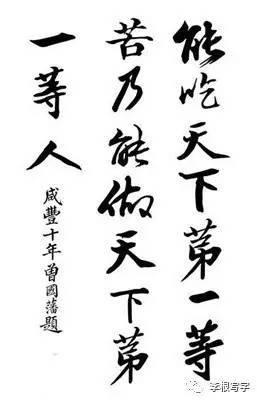 能吃天下第一等
苦乃能做天下第
一等人
咸豐十年曾國藩題
李根写字